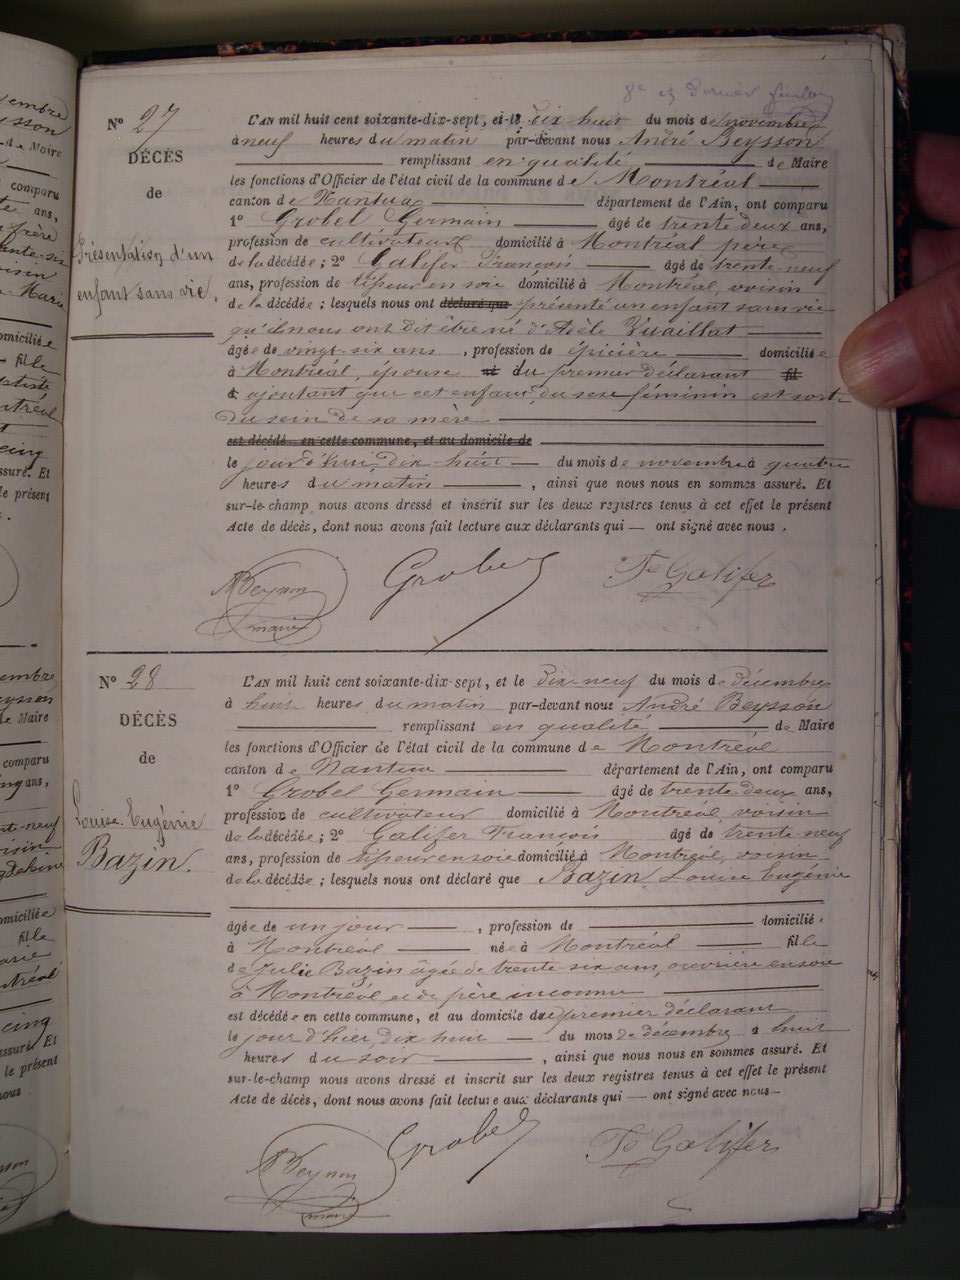 8e et Dernier feuillet
No 27
DÉCÈS
de
Présentation d'un
enfant sans vie.
L'AN mil huit cent soixante-dix-sept, et le dix huit du mois de novembre
à neuf heures du matin par-devant nous André Beysson
remplissant en qualité de Maire
les fonctions d'Officier de l'état civil de la commune de Montréal
canton de Nantua département de l'Ain, ont comparu
1° Grobel Germain âgé de trente deux ans,
profession de cultivateur domicilié à Montréal père
de la décédée ; 2° Galifer François âgé de trente-neuf
ans, profession de tipeur en soie domicilié à Montréal, voisin
de la décédée ; lesquels nous ont déclaré que présenté un enfant sans vie
qu'ils nous ont dit être né d'Adèle Vuaillat
âgée de vingt-six ans, profession de épicière domiciliée
à Montréal, épouse né du premier déclarant fil
à ajoutant que cet enfant du sexe féminin est sorti
du sein de sa mère
est décédé en cette commune, et au domicile de
le jour d'hui dix huit du mois de novembre à quatre
heures du matin, ainsi que nous nous en sommes assuré. Et
sur-le-champ nous avons dressé et inscrit sur les deux registres tenus à cet effet le présent
Acte de décès, dont nous avons fait lecture aux déclarants qui — ont signé avec nous.
ABeysson Grobel Fs Galifer
maire
No 28
DÉCÈS
de
Louise Eugénie
Bazin.
L'AN mil huit cent soixante-dix-sept, et le dix-neuf du mois de décembre
à huit heures du matin par-devant nous André Beysson
remplissant en qualité de Maire
les fonctions d'Officier de l'état civil de la commune de Montréal
canton de Nantua département de l'Ain, ont comparu
1° Grobel Germain âgé de trente deux ans,
profession de cultivateur domicilié à Montréal, voisin
de la décédée ; 2° Galifer François âgé de trente neuf
ans, profession de tipeur en soie domicilié à Montréal, voisin
de la décédée ; lesquels nous ont déclaré que Bazin Louise Eugénie
âgée de un jour, profession de domicilié
à Montréal née à Montréal fille
de Julie Bazin âgée de trente six ans, ouvrière en soie
à Montréal et de père inconnu
est décédée en cette commune, et au domicile du premier déclarant
le jour d'hier dix huit du mois de décembre à huit
heures du soir, ainsi que nous nous en sommes assuré. Et
sur-le-champ nous avons dressé et inscrit sur les deux registres tenus à cet effet le présent
Acte de décès, dont nous avons fait lecture aux déclarants qui — ont signé avec nous —
ABeysson Grobel Fs Galifer
maire